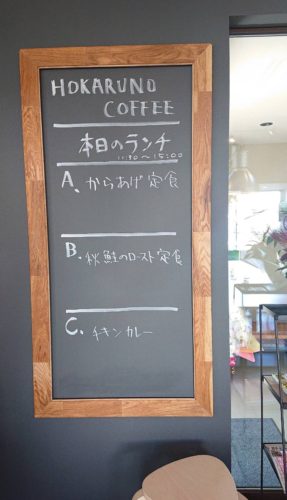 HOKARUNO
COFFEE
本日のランチ
11:30〜15:00
A、からあげ定食
B、秋鮭のロースト定食
C、チキンカレー